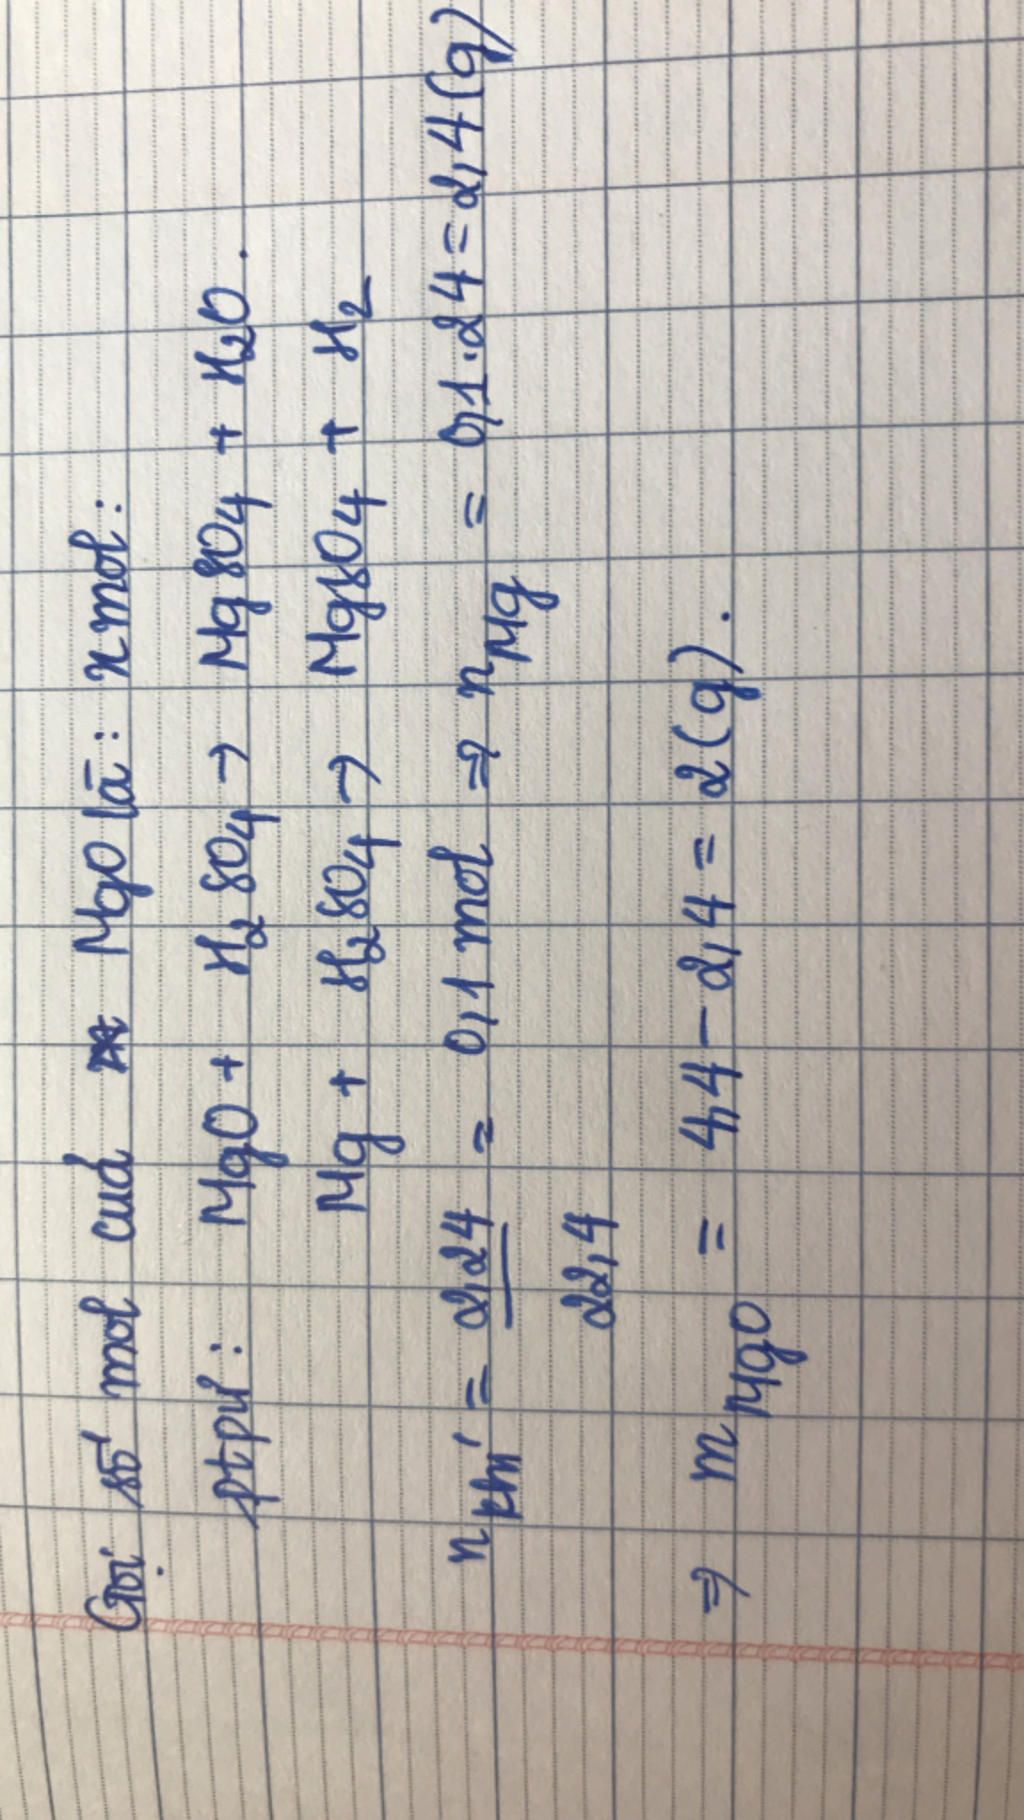 Gọi số mol của MgO là: x mol:
ptpư: MgO + H2SO4 → MgSO4 + H2O.
Mg + H2SO4 → MgSO4 + H2
n khí = 2,24 / 22,4 = 0,1 mol ⇒ n Mg = 0,1 . 24 = 2,4 (g)
⇒ m MgO = 4,4 - 2,4 = 2 (g).